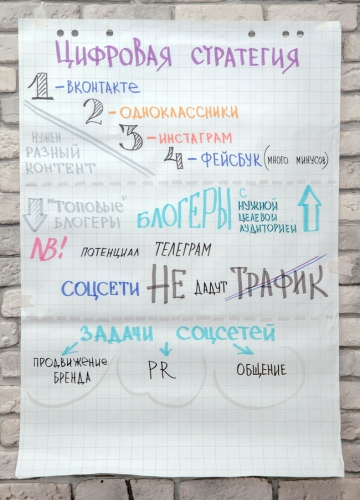 ЦИФРОВАЯ СТРАТЕГИЯ
1 - ВКОНТАКТЕ
2 - ОДНОКЛАССНИКИ
3 - ИНСТАГРАМ
4 - ФЕЙСБУК (МНОГО МИНУСОВ)
НУЖЕН
РАЗНЫЙ
КОНТЕНТ
"ТОПОВЫЕ"
БЛОГЕРЫ
БЛОГЕРЫ С
НУЖНОЙ
ЦЕЛЕВОЙ
АУДИТОРИЕЙ
NB! ПОТЕНЦИАЛ ТЕЛЕГРАМ
СОЦСЕТИ НЕ ДАДУТ ТРАФИК
ЗАДАЧИ СОЦСЕТЕЙ
ПРОДВИЖЕНИЕ
БРЕНДА
PR
ОБЩЕНИЕ